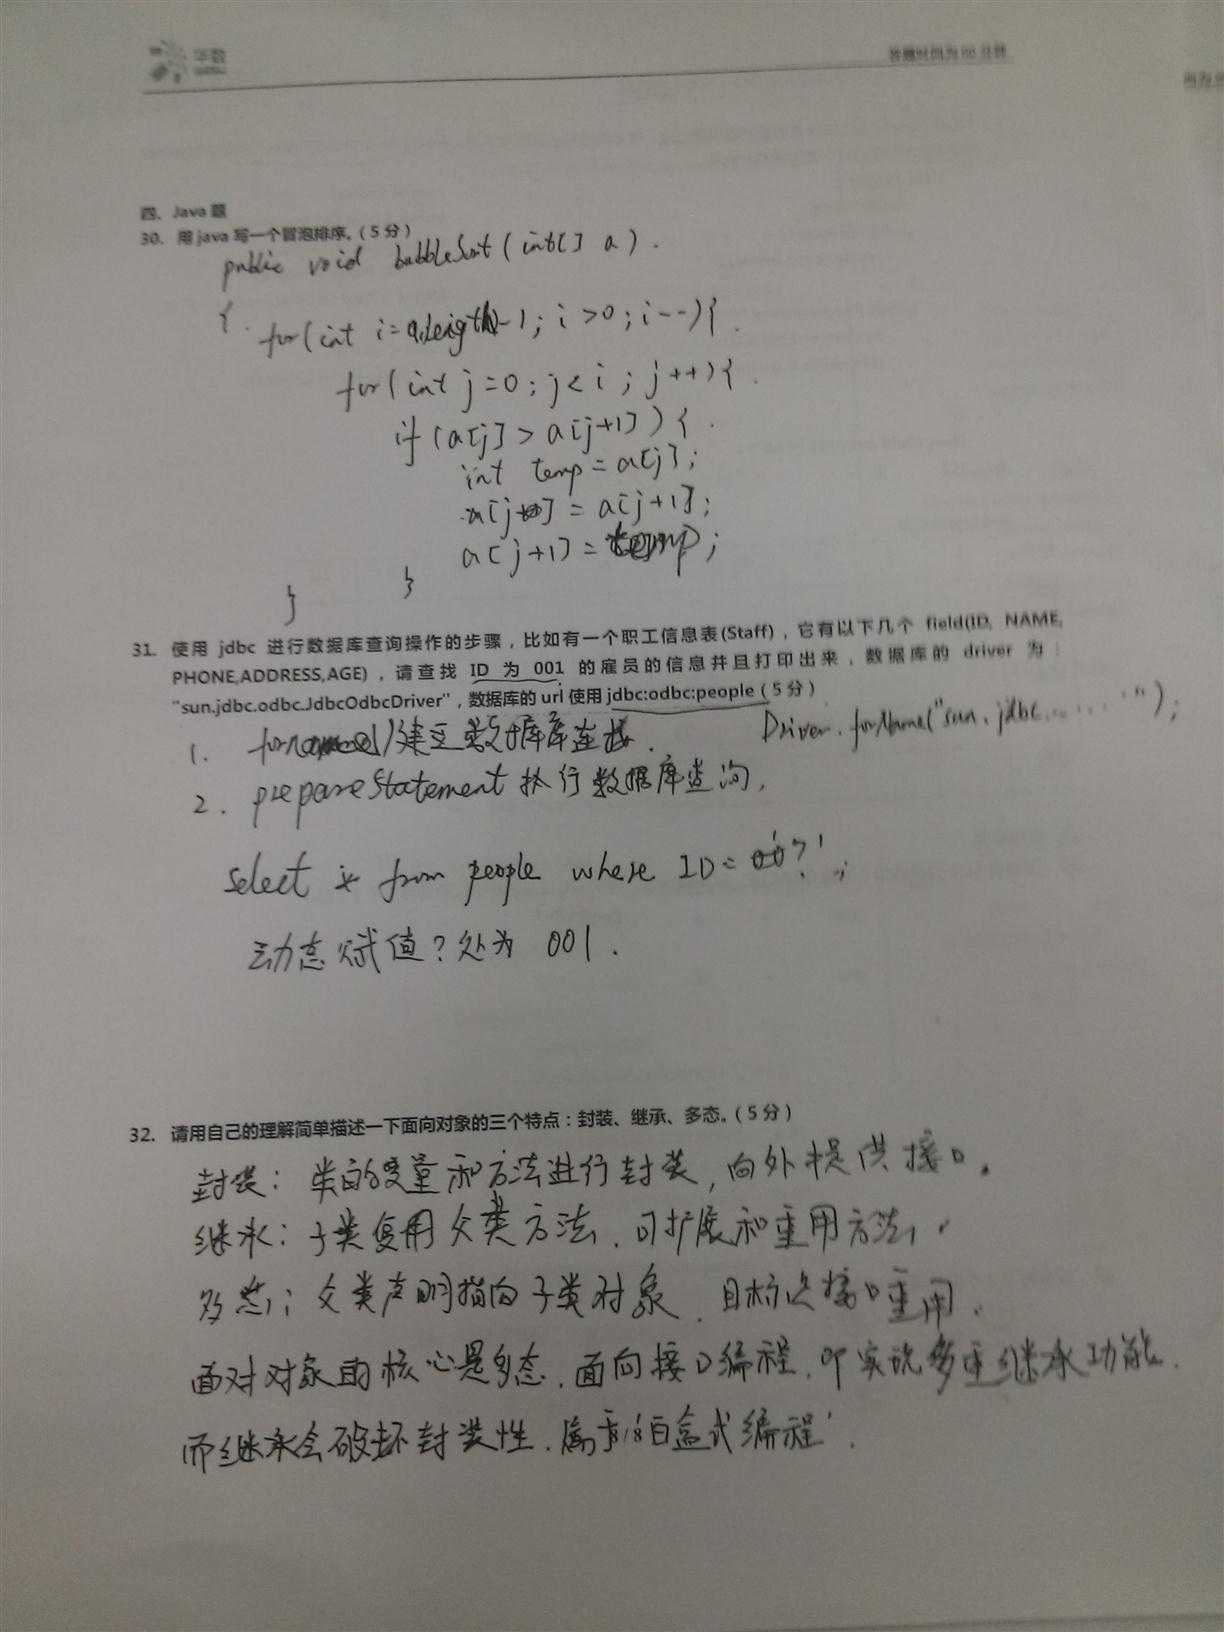 华数
答题时间为 分钟
四、Java题
30. 用java写一个冒泡排序。（5分）
public void bubbleSort (int[] a).
{.
for(int i=a.length-1; i>0; i--){.
for(int j=0; j<i; j++){.
if (a[j] > a[j+1]) {.
int temp = a[j];
a[j] = a[j+1];
a[j+1] = temp;
} }
31. 使用 jdbc 进行数据库查询操作的步骤，比如有一个职工信息表(Staff)，它有以下几个 field(ID, NAME,
PHONE,ADDRESS,AGE)，请查找 ID 为 001 的雇员的信息并且打印出来，数据库的 driver 为
"sun.jdbc.odbc.JdbcOdbcDriver"，数据库的url使用jdbc:odbc:people（5分）
Driver.forName("sun.jdbc.......");
1. 建立数据库库连接.
2. prepareStatement 执行数据库查询,
select * from people where ID = '?';
动态赋值?处为 001.
32. 请用自己的理解简单描述一下面向对象的三个特点：封装、继承、多态。（5分）
封装：类的变量和方法进行封装，向外提供接口。
继承：子类复用父类方法，可扩展和重用方法，
多态：父类声明指向子类对象，目标是接口重用.
面对对象的核心是多态，面向接口编程，即实现多重继承功能.
而继承会破坏封装性，属于'白盒式编程'.